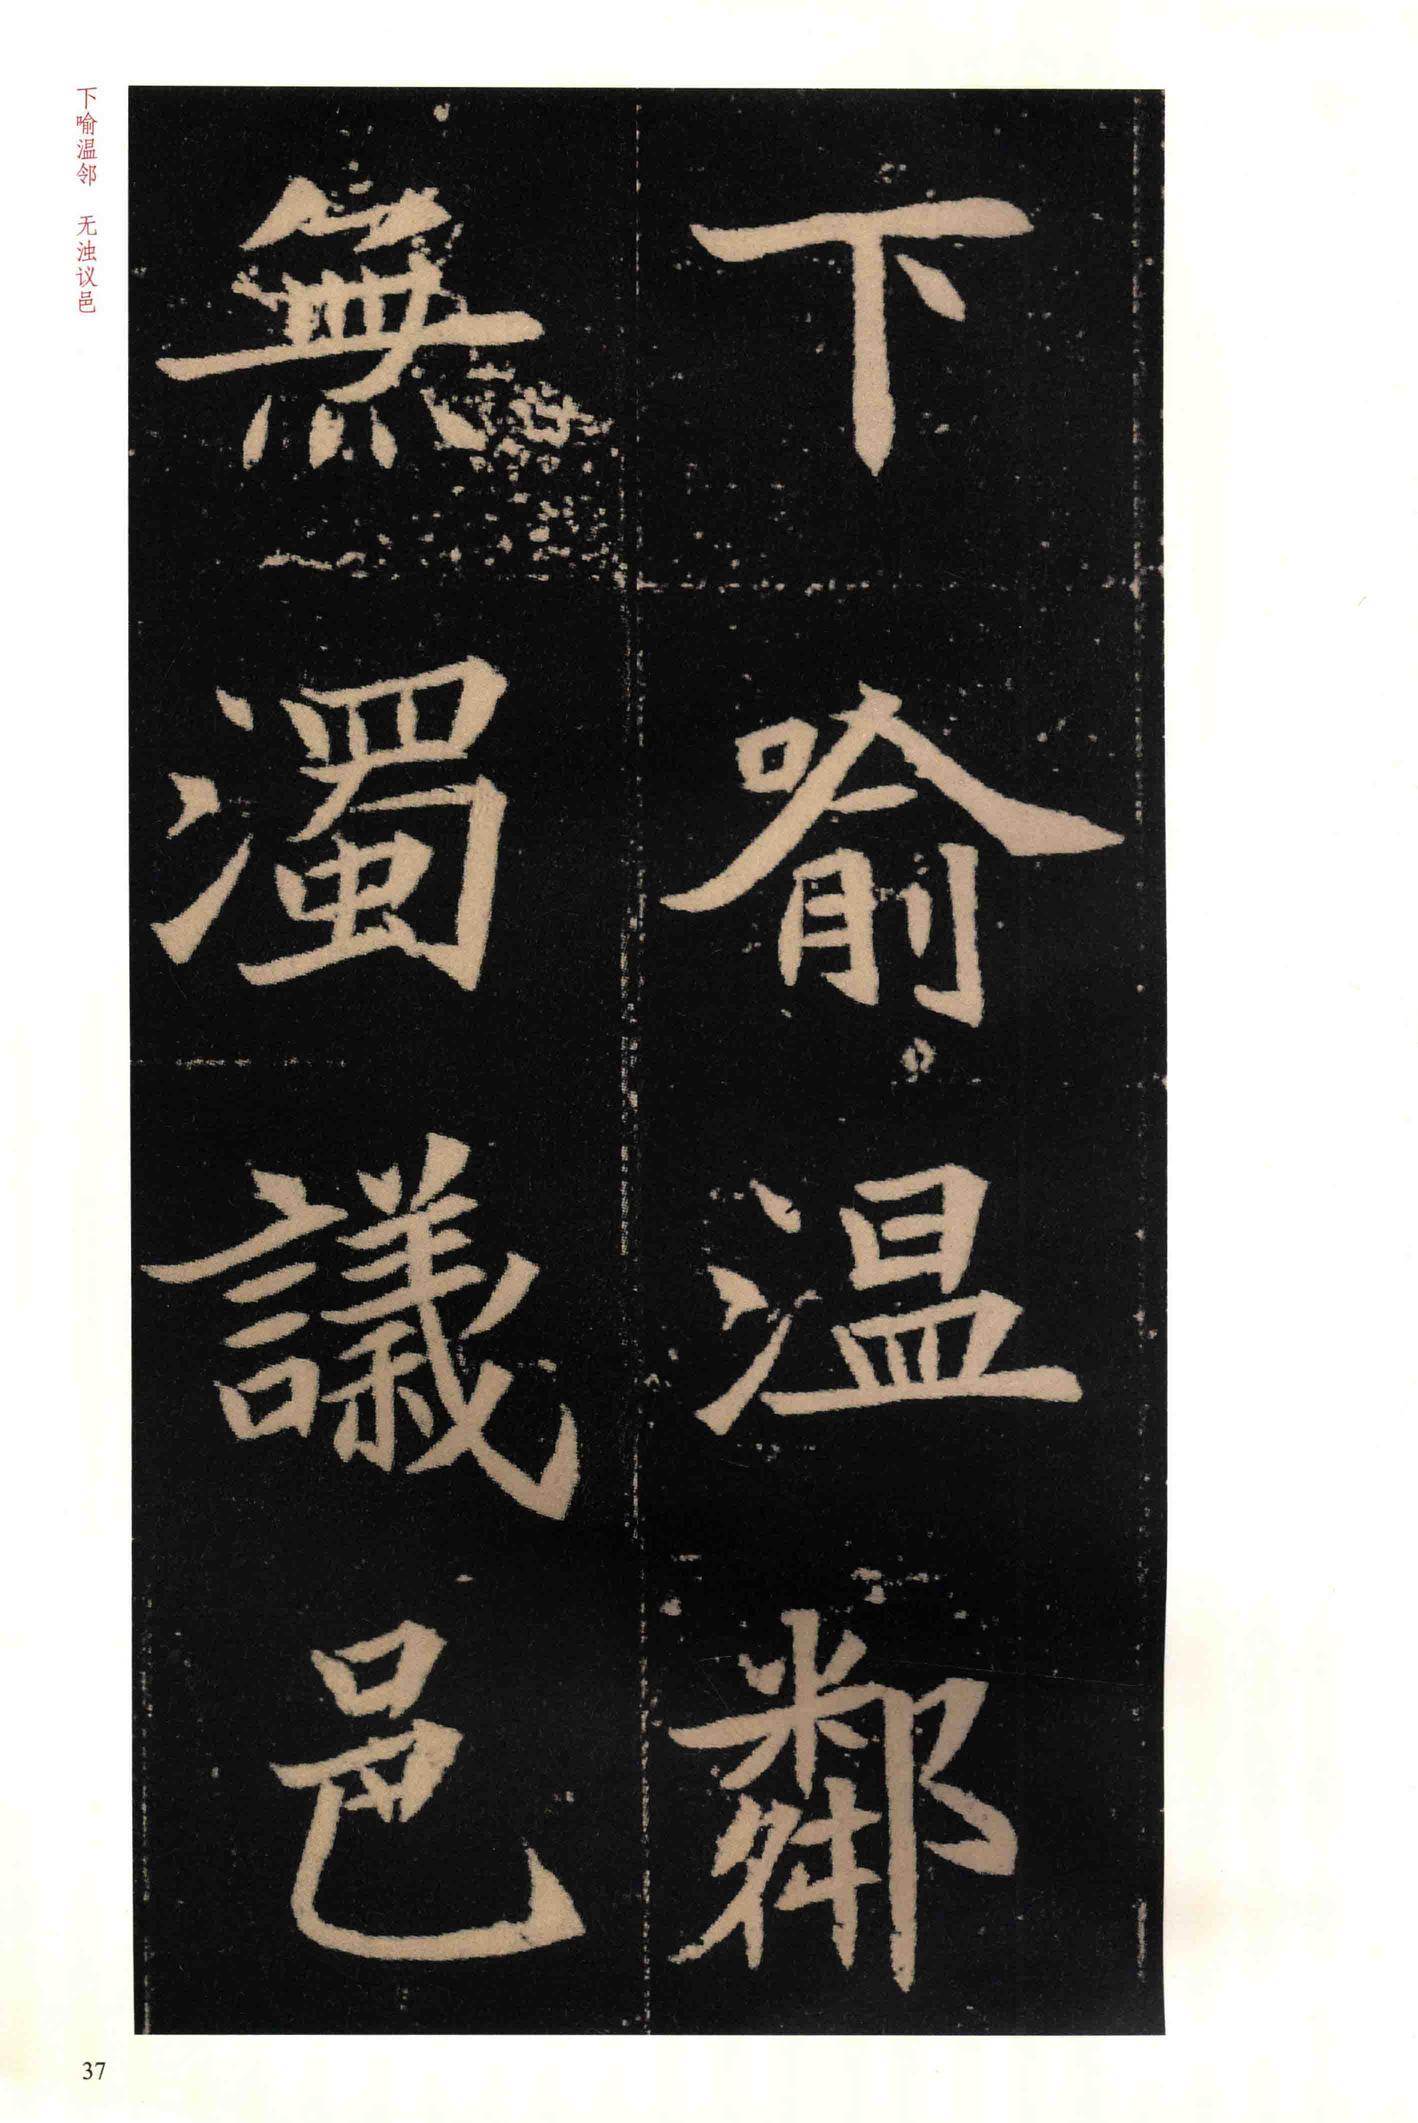 下喻温鄰
無濁議邑
下喻温邻 无浊议邑
37